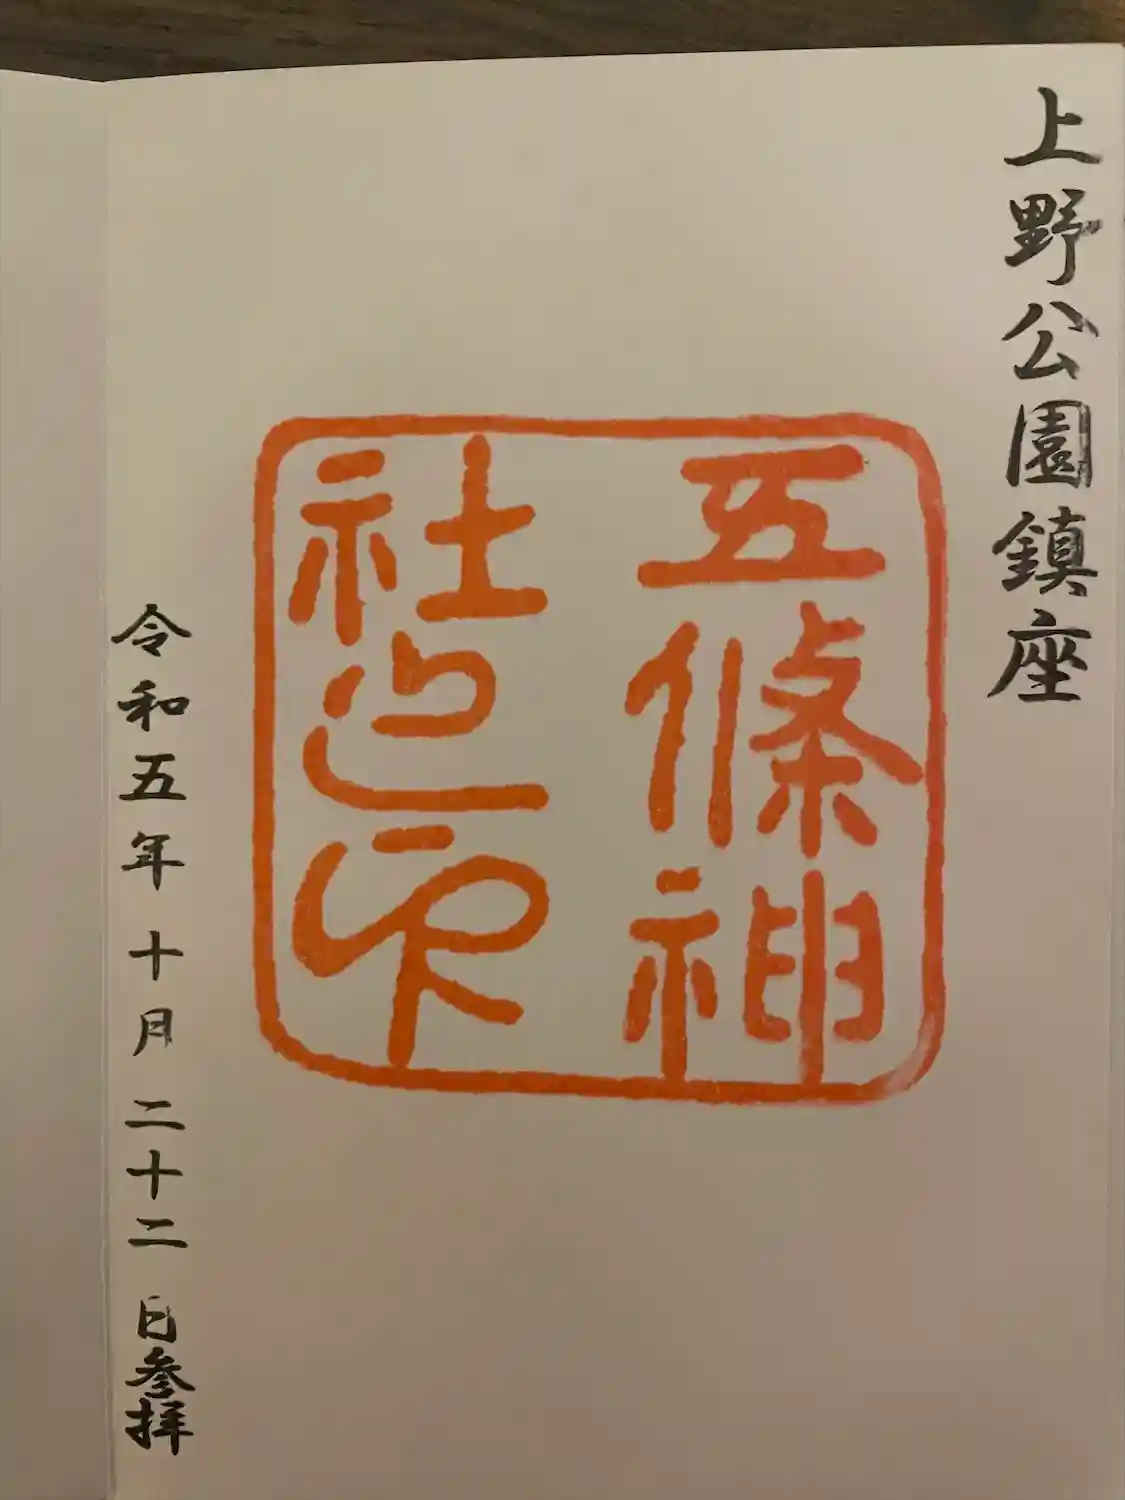 上野公園鎮座
五條神
社之印
令和五年十月二十二日参拝